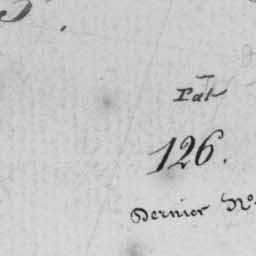 Pat
126.
Dernier No.